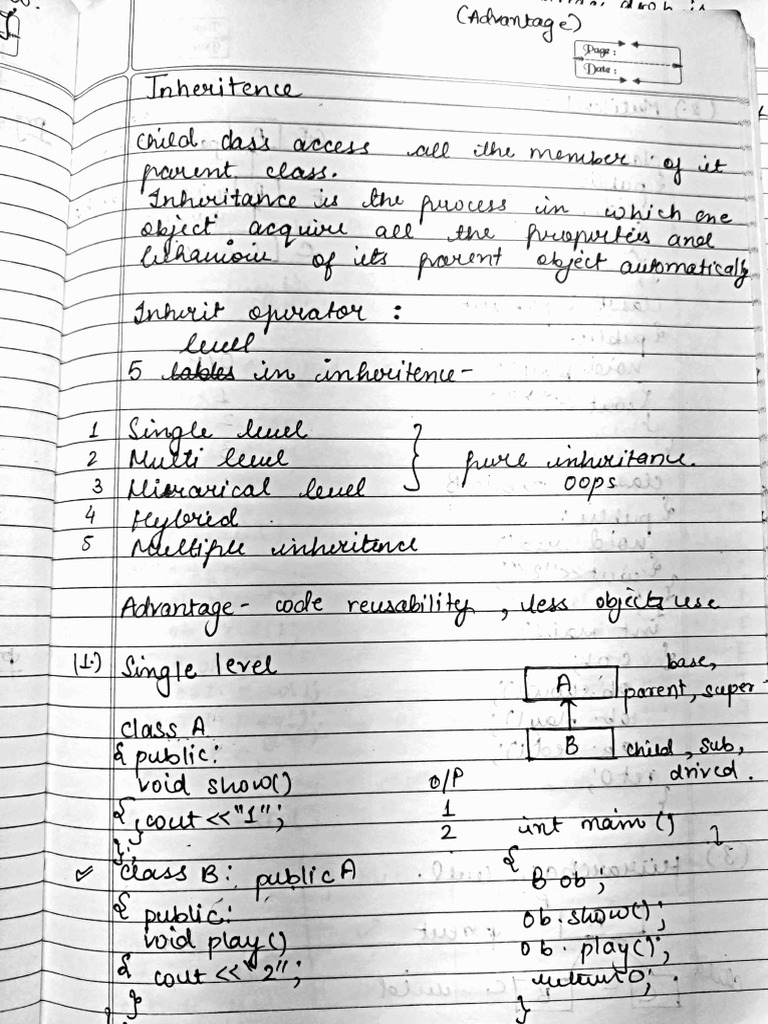 (Advantage)
Page:
Date:
Inheritence
Child class access all the member of it
parent class.
Inheritance is the process in which one
object acquire all the properties and
behaviour of its parent object automatically
Inherit operator :
level
5 tables in inheritence -
1 Single level
2 Multi level
3 Hierarical level
} pure inheritance.
OOPS
4 Hybried
5 Multiple inheritence
Advantage - code reusability, less objects use
(1.) Single level
A
base,
parent, super
B
child, sub,
drived.
class A
{ public:
void show()
{ cout <<"1";
}
};
O/P
1
2
✓ class B: public A
{ public:
void play()
{ cout <<"2";
}
int main()
{
B ob;
ob.show();
ob. play();
return 0;
}